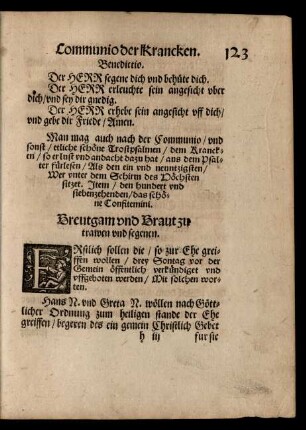 Communio der Krancken. 123
Benedictio.
Der HERR segene dich vnd behüte dich.
Der HERR erleuchte sein angesicht vber
dich/vnd sey dir gnedig.
Der HERR erhebt sein angesicht vff dich/
vnd gebe dir Friede/Amen.
Man mag auch nach der Communio/vnd
sonst/etliche schöne Trostpsalmen/dem Kranck-
en/so er lust vnd andacht dazu hat/aus dem Psal-
ter fürlesen/Als den ein vnd neuntzigsten/
Wer vnter dem Schirm des Höchsten
sitzet. Item/den hundert vnd
siebenzehenden/das schö-
ne Confitemini.
Breutgam vnd Braut zu
trawen vnd segenen.
ERstlich sollen die/so zur Ehe grei-
ffen wollen/drey Sontag vor der
Gemein öffentlich verkündiget vnd
vffgeboten werden/Mit solchen wor-
ten.
Hans N. vnd Greta N. wöllen nach Gött-
licher Ordnung zum heiligen stande der Ehe
greiffen/begeren des ein gemein Christlich Gebet
h iij für sie